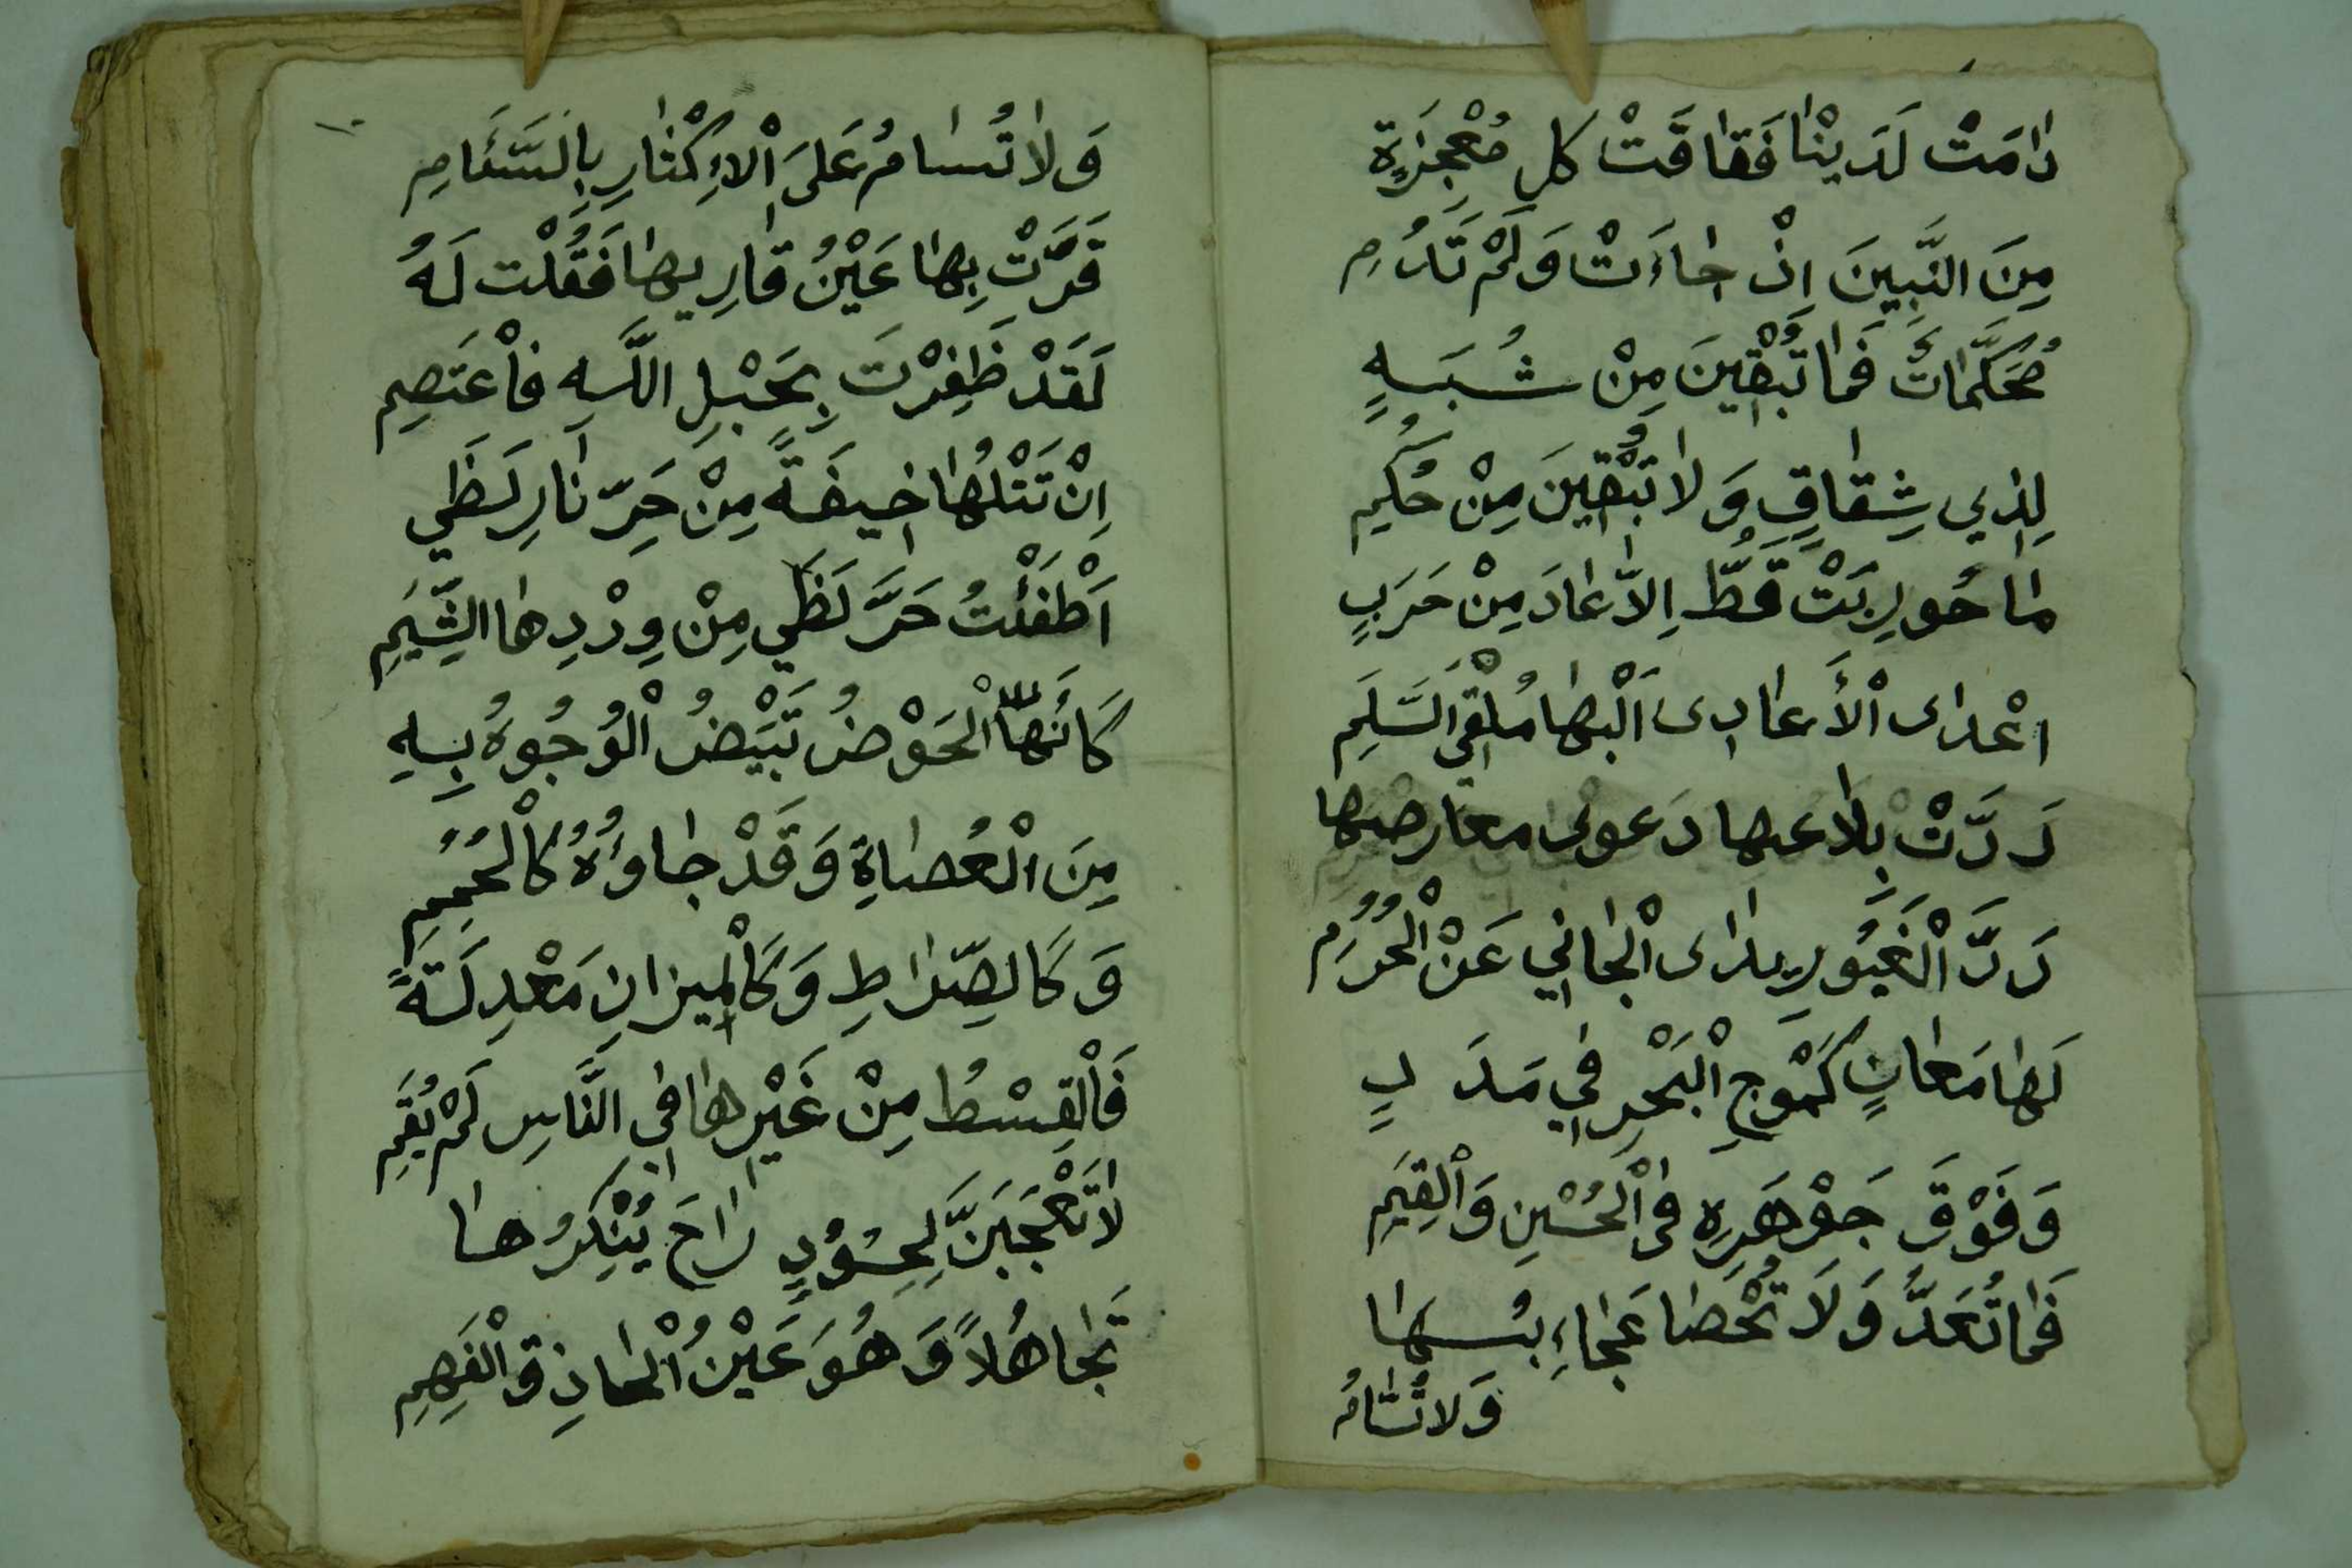 دٰامَتْ لَدَيْنٰا فَفٰاقَتْ كل مُعْجِزَةٍ
مِنَ النَّبِيِنَ اِذْ جٰاءَتْ وَلَمْ تَدُمِ
مُحَكَّمٰاتٌ فَمٰا تُبْقِينَ مِنْ شُبَهٍ
لِذِي شِقٰاقٍ وَلاٰ تُبْقِينَ مِنْ حُكِمِ
مٰا حُورِبَتْ قَطُّ اِلاّٰ عٰادَ مِنْ حَرَبٍ
اعْدٰى اْلأَعٰادِى اَلَيْهٰا مُلْقِيَ السَّلَمِ
رَدَّتْ بِلاٰغتها دَعوى معارضها
رَدَّ الْغَيُورِ يدٰى الْجٰانِي عَنْ الْحُرُمِ
لَهٰا مَعٰانٍ كَمَوْجِ الْبَحْرِ فِي مَدَدٍ
وَفَوْقَ جَوْهَرِهِ فِى الْحُسْنِ وَالْقِيَمِ
فَمٰا تُعَدُّ وَلَا تُحْصٰا عَجٰاءِبُهٰا
وَلا تُسٰامُ
١٠
وَلاٰ تُسٰامُ عَلَى اْلاِكْثٰارِ بِالسَّئَامِ
قَرَّتْ بِهٰا عَيْنُ قٰارِيهٰا فَقُلْت لَهُ
لَقَدْ ظَفِرْتَ بِحَبْلِ اللَّهِ فٰاْعْتَصِمِ
اِنْ تَتْلُهٰا خِيفَةً مِنْ حَرِّ نٰارِ لَظَي
اَطْفَئْتُ حَرَّ لَظَي مِنْ وِرْدِهٰا الشِّيَمِ
كَانَّهٰا الْحَوْضُ تَبْيَضُّ الْوُجُوهُ بِهِ
مِنَ الْعُصٰاةِ وَقَدْ جٰاوُهُ كَالْحُمَمِ
وَكَالصِّرٰاطِ وَكَالْمِيزٰانِ مَعْدِلَةً
فَالْقِسْطُ مِنْ غَيْرِهٰا فِي النَّاسِ لَمْ يُقَمِ
لاٰ تَعْجَبَنَّ لِحَسُوْدٍ رٰاحَ يُنْكِرُهٰا
تَجٰاهُلاً وَهُوَ عَيْنُ الْحٰاذِقِ الْفَهِمِ